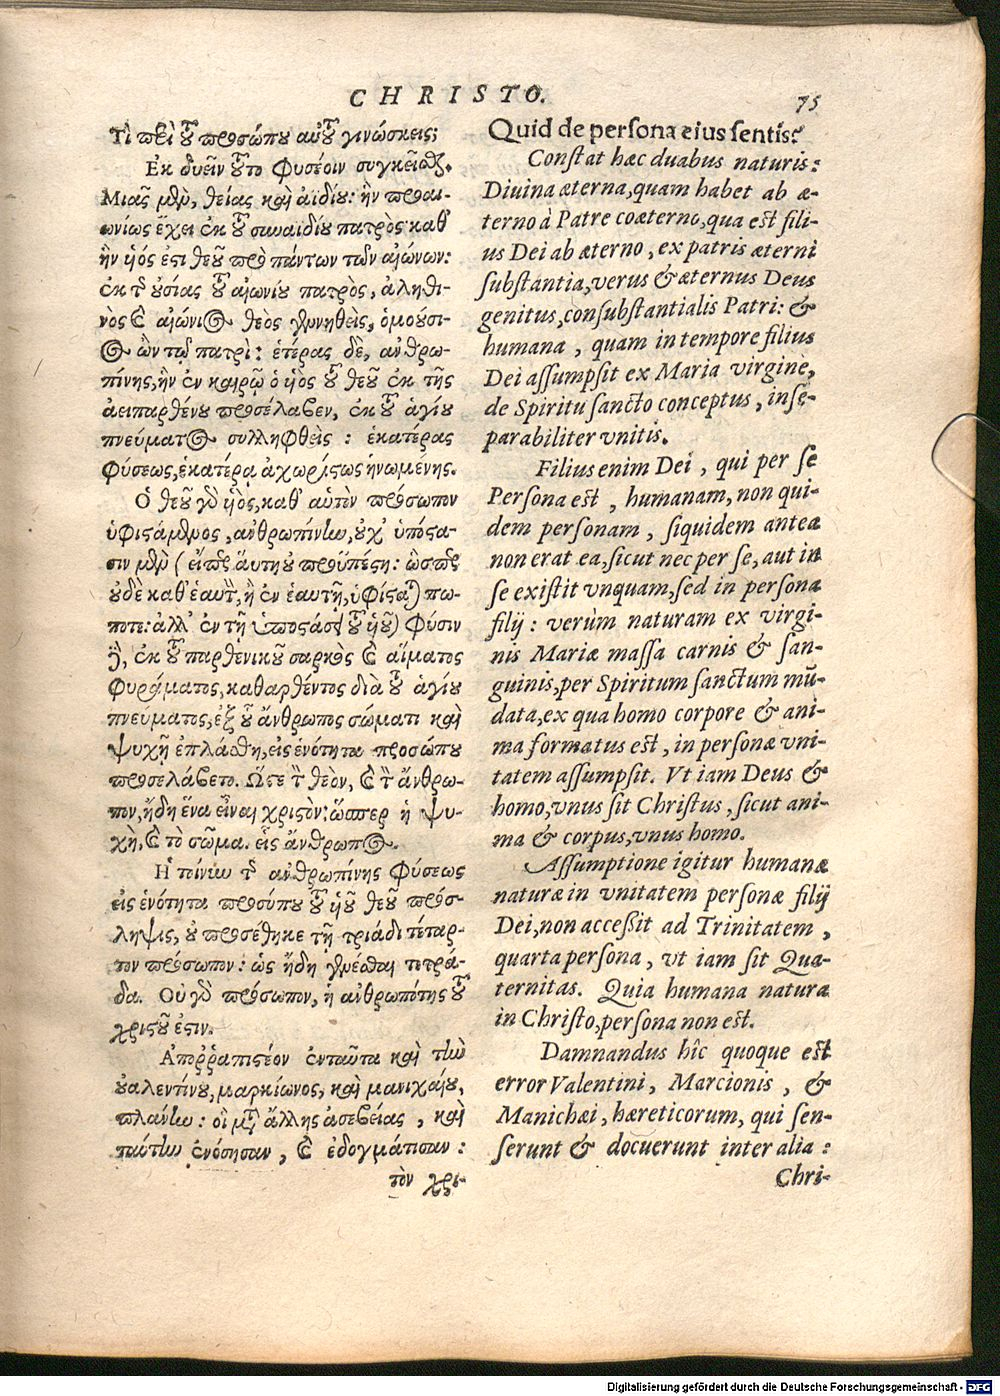 CHRISTO.
75
Τί περὶ τοῦ προσώπου αὐτοῦ γινώσκεις;
Ἐκ δυεῖν τοῦτο φυσέοιν συγκεῖται.
Μιᾶς μὲν, θείας καὶ ἀϊδίου: ἣν προαι-
ωνίως ἔχει ἐκ τοῦ συναϊδίου πατρὸς καθ'
ἣν υἱός ἐστι θεοῦ πρὸ πάντων τῶν αἰώνων:
ἐκ τῆς οὐσίας τοῦ αἰωνίου πατρὸς, ἀληθι-
νὸς καὶ αἰώνιος θεὸς γεννηθεὶς, ὁμοούσι-
ος ὢν τῷ πατρί: ἑτέρας δὲ, ἀνθρω-
πίνης, ἣν ἐν καιρῷ ὁ υἱὸς τοῦ θεοῦ ἐκ τῆς
ἀειπαρθένου προσέλαβεν, ἐκ τοῦ ἁγίου
πνεύματος συλληφθεὶς: ἑκατέρας
φύσεως, ἑκατέρᾳ ἀχωρίστως ἡνωμένης.
Ὁ θεοῦ γὰρ υἱὸς, καθ' αὑτὸν πρόσωπον
ὑφιστάμενος, ἀνθρωπίνην, οὐχ' ὑπόστα-
σιν μὲν (εἴπερ αὕτη οὐ προϋπέστη: ὥσπερ
οὐδὲ καθ' ἑαυτὴν, ἢ ἐν ἑαυτῇ, ὑφίσταται) πώ-
ποτε: ἀλλ' ἐν τῇ ὑποστάσει τοῦ υἱοῦ) φύσιν
δὲ, ἐκ τοῦ παρθενικοῦ σαρκὸς καὶ αἵματος
φυράματος, καθαρθέντος διὰ τοῦ ἁγίου
πνεύματος, ἐξ οὗ ἄνθρωπος σώματι καὶ
ψυχῇ ἐπλάσθη, εἰς ἑνότητα προσώπου
προσελάβετο. Ὥστε τὸν θεὸν, καὶ τὸν ἄνθρω-
πον, ἤδη ἕνα εἶναι χριστὸν: ὥσπερ ἡ ψυ-
χὴ, καὶ τὸ σῶμα. εἷς ἄνθρωπος.
Ἡ τοίνυν τῆς ἀνθρωπίνης φύσεως
εἰς ἑνότητα προσώπου τοῦ υἱοῦ θεοῦ πρόσ-
ληψις, οὐ προσέθηκε τῇ τριάδι τέταρ-
τον πρόσωπον: ὡς ἤδη γενέσθαι τετρά-
δα. Οὐ γὰρ πρόσωπον, ἡ ἀνθρωπότης τοῦ
χριστοῦ ἐστιν.
Ἀποῤῥαπιστέον ἐνταῦτα καὶ τὴν
οὐαλεντίνου, μαρκίωνος, καὶ μανιχαίου,
πλάνην: οἳ μετ' ἄλλης ἀσεβείας, καὶ
ταύτην ἐνόησαν, καὶ ἐδογμάτισαν:
τὸν χρι-
Quid de persona eius sentis?
Constat hæc duabus naturis:
Diuina æterna, quam habet ab æ-
terno à Patre coæterno, qua est fili-
us Dei ab æterno, ex patris æterni
substantia, verus & æternus Deus
genitus, consubstantialis Patri: &
humana, quam in tempore filius
Dei assumpsit ex Maria virgine,
de Spiritu sancto conceptus, inse-
parabiliter vnitis.
Filius enim Dei, qui per se
Persona est, humanam, non qui-
dem personam, siquidem anteà
non erat ea, sicut nec per se, aut in
se existit vnquam, sed in persona
filij: verùm naturam ex virgi-
nis Mariæ massa carnis & san-
guinis, per Spiritum sanctum mū-
data, ex qua homo corpore & ani-
ma formatus est, in personæ vni-
tatem assumpsit. Vt iam Deus &
homo, vnus sit Christus, sicut ani-
ma & corpus, vnus homo.
Assumptione igitur humanæ
naturæ in vnitatem personæ filij
Dei, non accessit ad Trinitatem,
quarta persona, vt iam sit Qua-
ternitas. Quia humana natura
in Christo, persona non est.
Damnandus hîc quoque est
error Valentini, Marcionis, &
Manichæi, hæreticorum, qui sen-
serunt & docuerunt inter alia:
Chri-
Digitalisierung gefördert durch die Deutsche Forschungsgemeinschaft - DFG